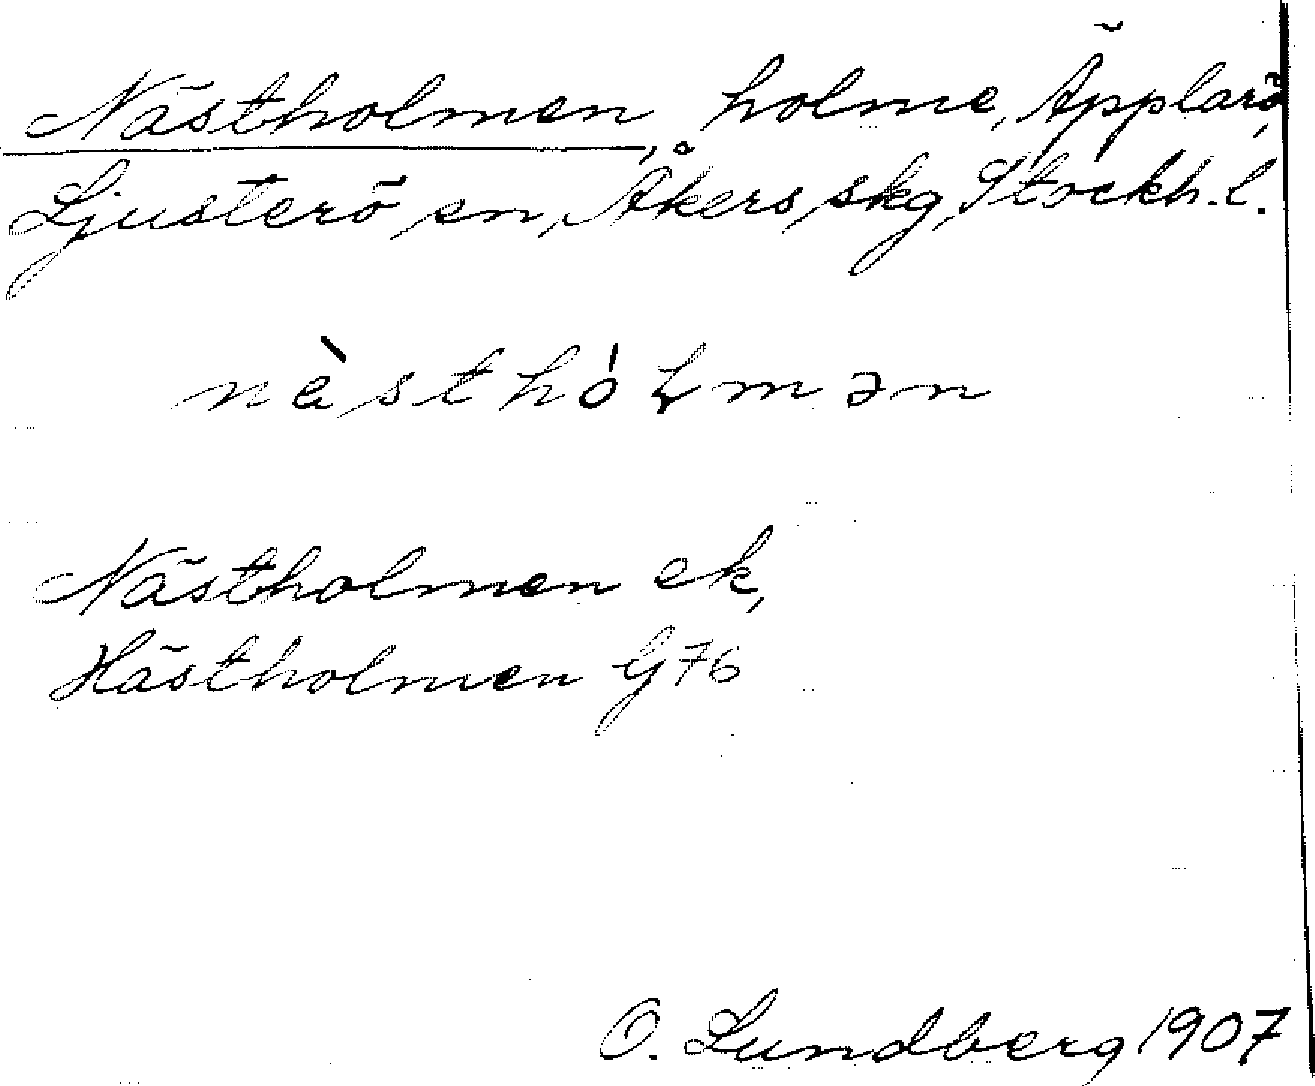 Nästholmen, holme, Äpplarö,
Ljusterö sn, Åkers skg, Stockh. l.
nàsthóɭmən
Nästholmen ek,
Hästholmen G76
O. Lundberg 1907